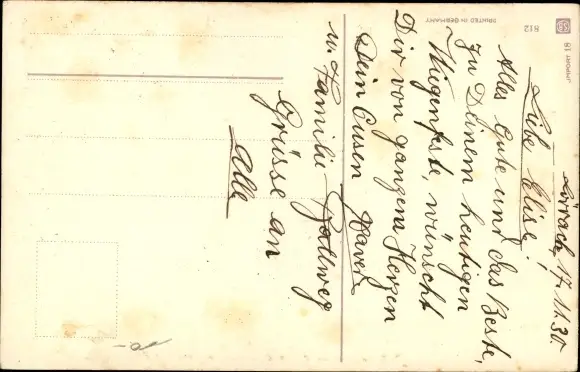 Lörrach, 17.11.30
Liebe Elise!
Alles Gute und das Beste,
zu Deinem heutigen
Wiegenfeste, wünscht
Dir von ganzem Herzen
Dein Eugen Xaver
u. Familie Gallweg
Grüsse an
Alle
PRINTED IN GERMANY
812
IMPORT 18